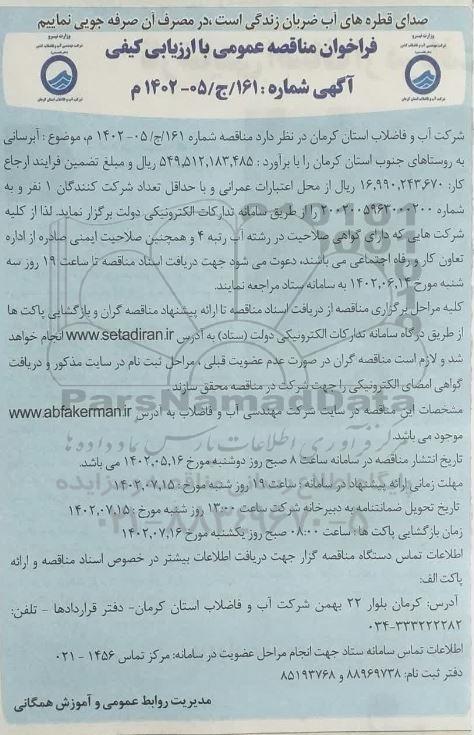 صدای قطره های آب ضربان زندگی است ،در مصرف آن صرفه جویی نماییم
فراخوان مناقصه عمومی با ارزیابی کیفی
آگهی شماره : ۱۶۱/ج/۰۵-۱۴۰۲ م
شرکت آب و فاضلاب استان کرمان در نظر دارد مناقصه شماره ۱۶۱/ج/۰۵-۱۴۰۲ م، موضوع : آبرسانی
به روستاهای جنوب استان کرمان را با برآورد : ۵۴۹,۵۱۲,۱۸۳,۴۸۵ ریال و مبلغ تضمین فرایند ارجاع
کار: ۱۶,۹۹۰,۲۴۳,۶۷۰ ریال از محل اعتبارات عمرانی و با حداقل تعداد شرکت کنندگان ۱ نفر و به
شماره ۲۰۰۲۰۰۵۹۶۳۰۰۰۲۰۰ را از طریق سامانه تدارکات الکترونیکی دولت برگزار نماید. لذا از کلیه
شرکت هایی که دارای گواهی صلاحیت در رشته آب رتبه ۴ و همچنین صلاحیت ایمنی صادره از اداره
تعاون کار و رفاه اجتماعی می باشند، دعوت می شود جهت دریافت اسناد مناقصه تا ساعت ۱۹ روز سه
شنبه مورخ ۱۴۰۲,۰۶,۱۴ به سامانه ستاد مراجعه نمایند.
کلیه مراحل برگزاری مناقصه از دریافت اسناد مناقصه تا ارائه پیشنهاد مناقصه گران و بازگشایی پاکت ها
از طریق درگاه سامانه تدارکات الکترونیکی دولت (ستاد) به آدرس www.setadiran.ir انجام خواهد
شد و لازم است مناقصه گران در صورت عدم عضویت قبلی ، مراحل ثبت نام در سایت مذکور و دریافت
گواهی امضای الکترونیکی را جهت شرکت در مناقصه محقق سازند.
مشخصات این مناقصه در سایت شرکت مهندسی آب و فاضلاب به آدرس www.abfakerman.ir
موجود می باشد.
تاریخ انتشار مناقصه در سامانه ساعت ۸ صبح روز دوشنبه مورخ ۱۴۰۲,۰۵,۱۶ می باشد.
مهلت زمانی ارائه پیشنهاد در سامانه : ساعت ۱۹ روز شنبه مورخ : ۱۴۰۲,۰۷,۱۵
تاریخ تحویل ضمانتنامه به دبیرخانه شرکت ساعت ۱۳:۰۰ روز شنبه مورخ : ۱۴۰۲,۰۷,۱۵
زمان بازگشایی پاکت ها : ساعت ۰۸:۰۰ صبح روز یکشنبه مورخ ۱۴۰۲,۰۷,۱۶
اطلاعات تماس دستگاه مناقصه گزار جهت دریافت اطلاعات بیشتر در خصوص اسناد مناقصه و ارائه
پاکت الف:
آدرس: کرمان بلوار ۲۲ بهمن شرکت آب و فاضلاب استان کرمان- دفتر قراردادها - تلفن:
۰۳۴-۳۳۳۲۲۲۲۸۲
اطلاعات تماس سامانه ستاد جهت انجام مراحل عضویت در سامانه: مرکز تماس ۱۴۵۶ - ۰۲۱
دفتر ثبت نام: ۸۸۹۶۹۷۳۸ و ۸۵۱۹۳۷۶۸
مدیریت روابط عمومی و آموزش همگانی
ParsNamadData